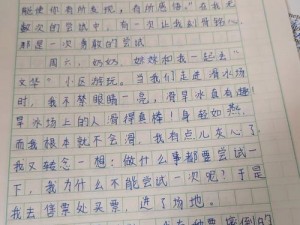 能使你有所发现，有所感悟。"在我无
数次的尝试中，有一次让我刻骨铭心，
那是一次勇敢的尝试
周六，奶奶、姐姐和我一起去"
文华"小区游玩。当我们走进滑冰场
时，我不禁眼睛一亮，滑旱冰真有趣！
旱冰场上的人滑得真棒！身轻如燕，
而我根本就不会滑，我有点儿灰心了
我又转念一想：做什么事都要尝试一
下，我为什么不能尝试一次呢？于是
我去售票处买票，进了场地。
的